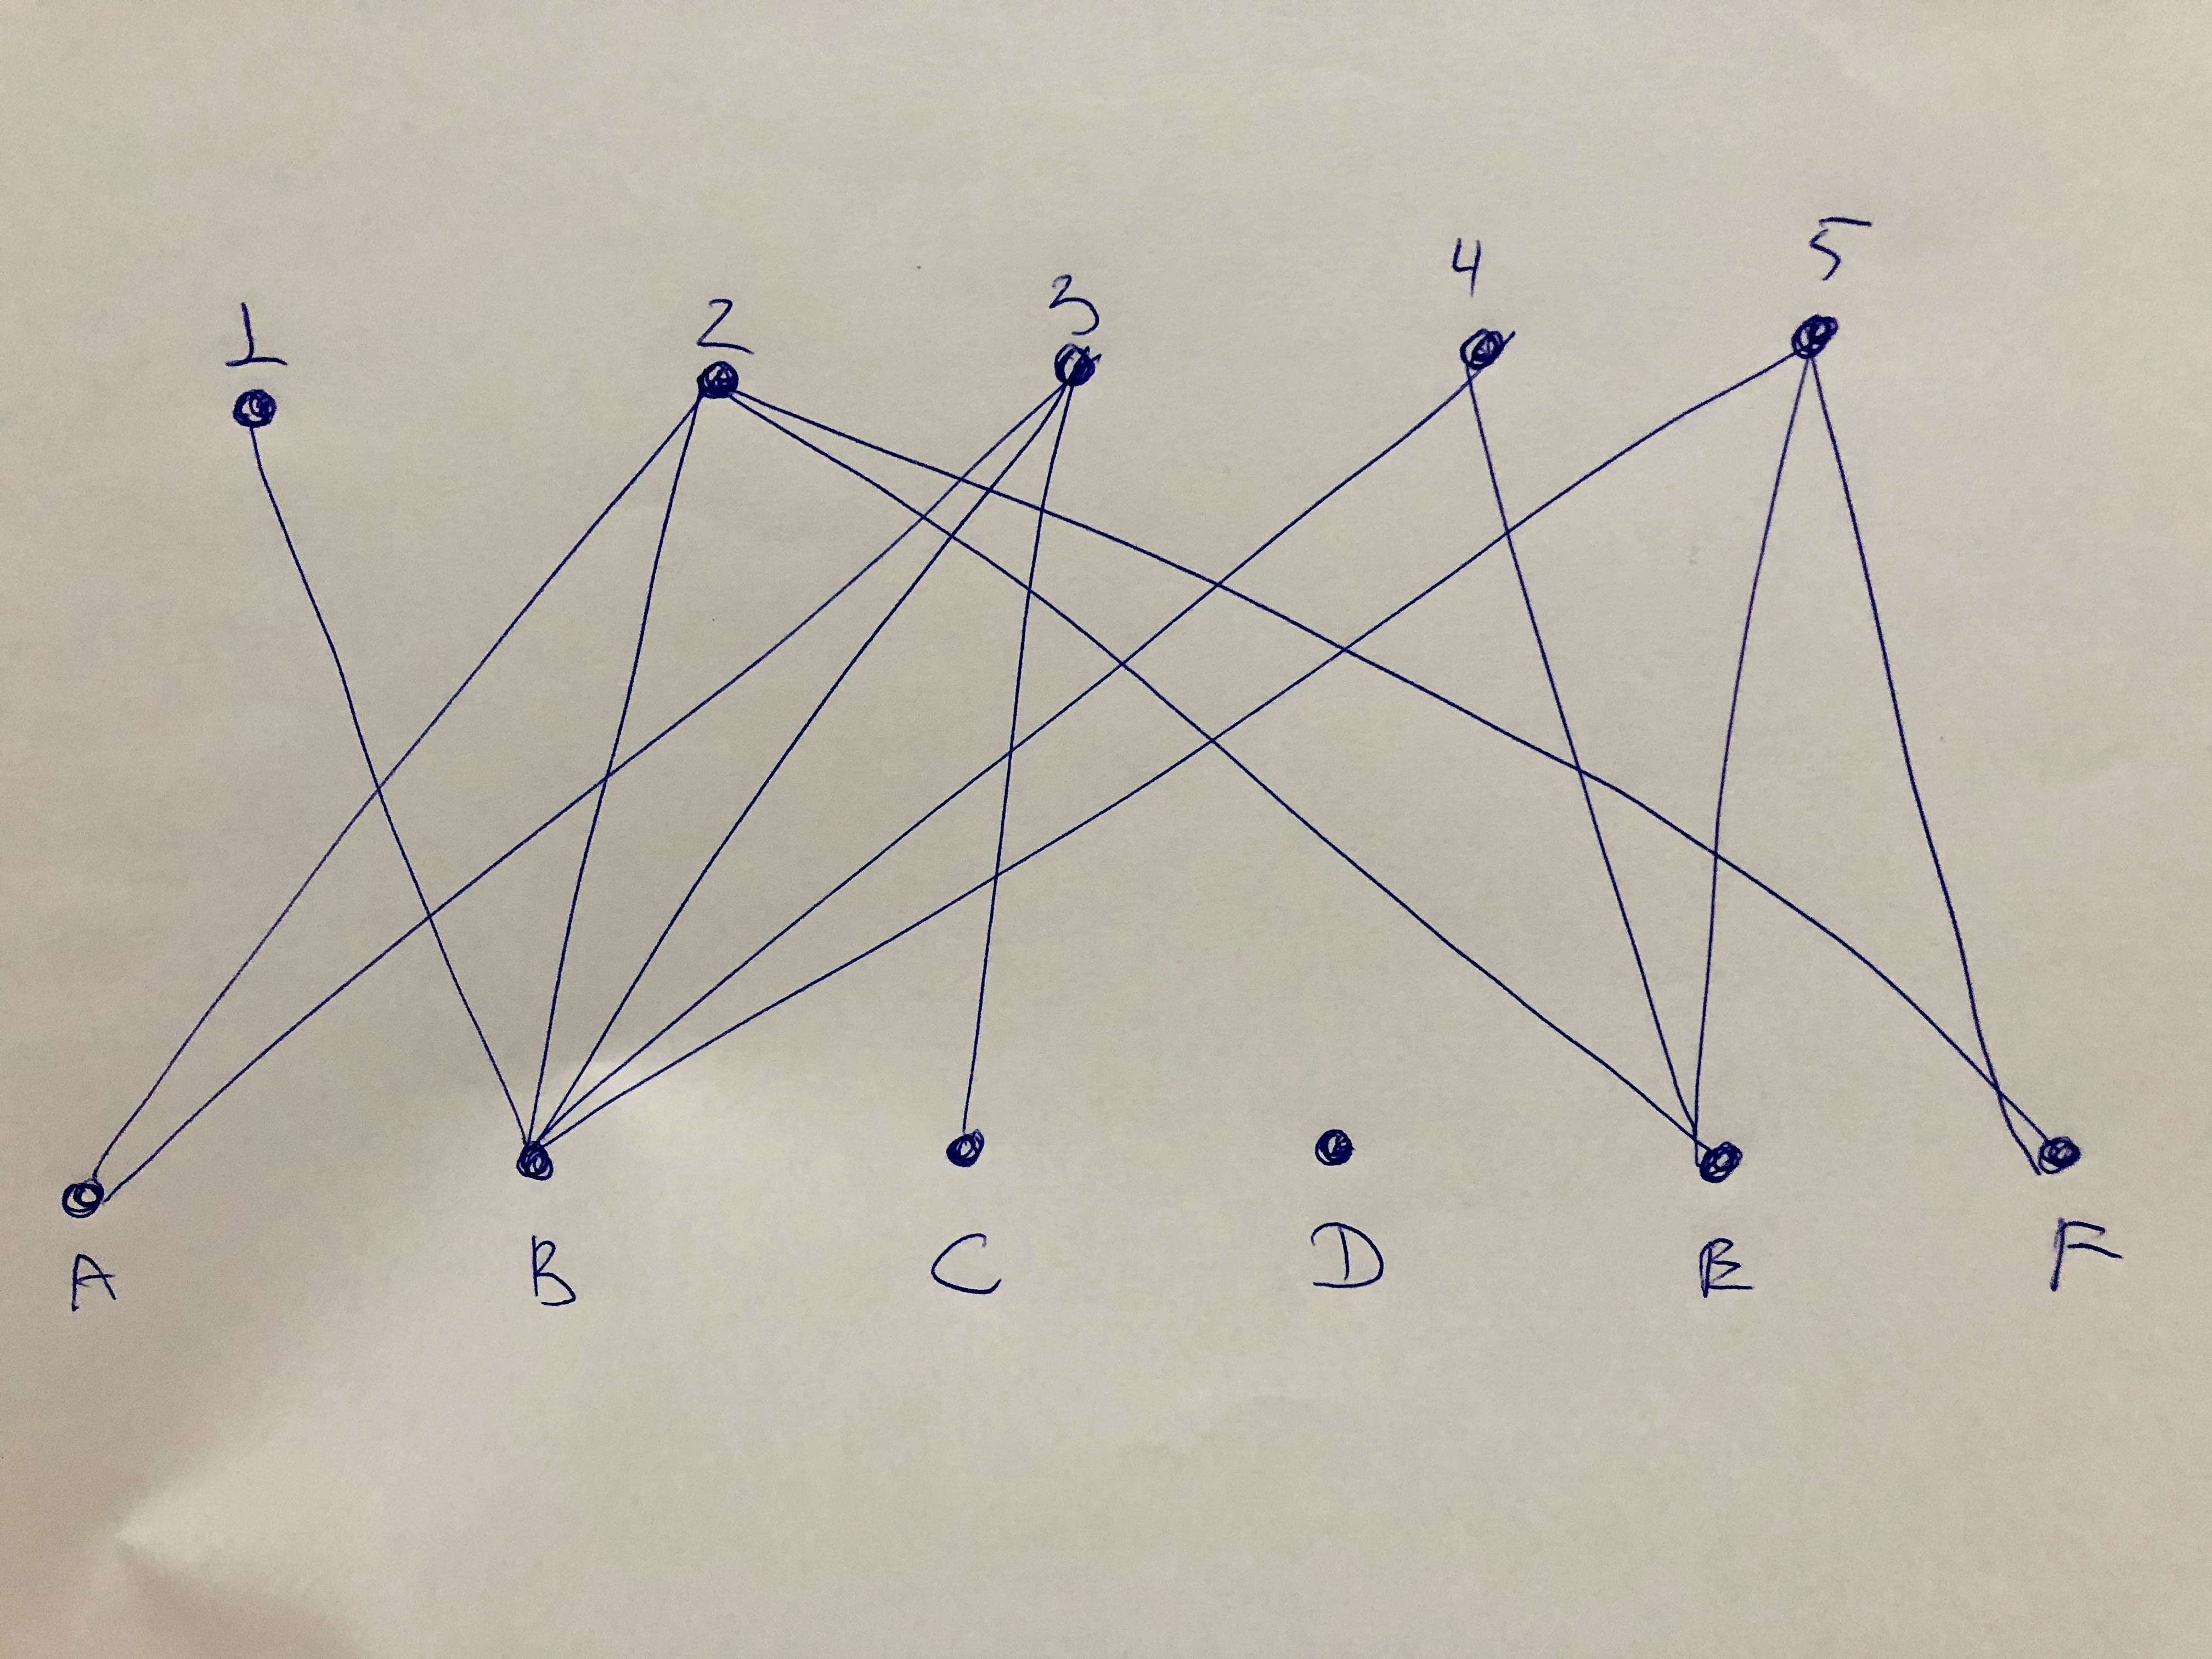 1 2 3 4 5
A B C D E F